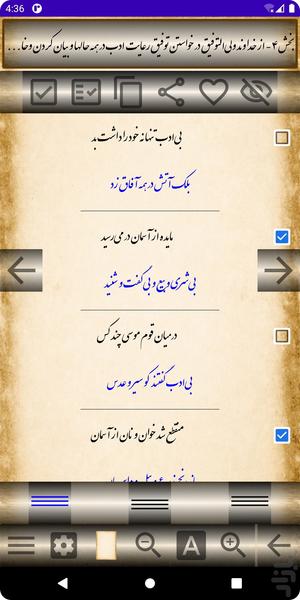 4:36
بخش ۴ - از خداوند ولی التوفیق در خواستن توفیق رعایت ادب در همه حالها و بیان کردن وخا...
بی‌ادب تنها نه خود را داشت بد
بلک آتش در همه آفاق زد
مایده از آسمان در می‌رسید
بی‌شری و بیع و بی‌گفت و شنید
درمیان قوم موسی چند کس
بی‌ادب گفتند کو سیر و عدس
منقطع شد خوان و نان از آسمان
A